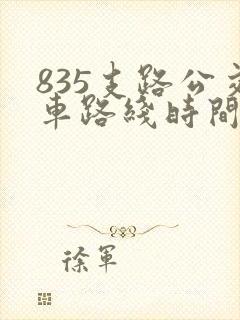 835支路公交
車路綫時間
徐軍